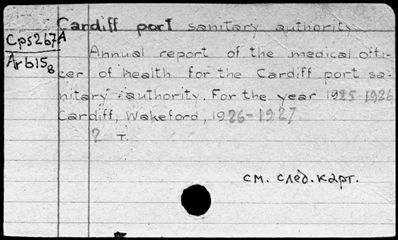 Cardiff port sanitary authority.
Cps2b7A
Annual report of the medical offi-
Arb158
cer of health for the Cardiff port sa-
nitary authority. For the year 1925-1926
Cardiff, Wakeford, 1926-1927.
2 т.
см. след. карт.